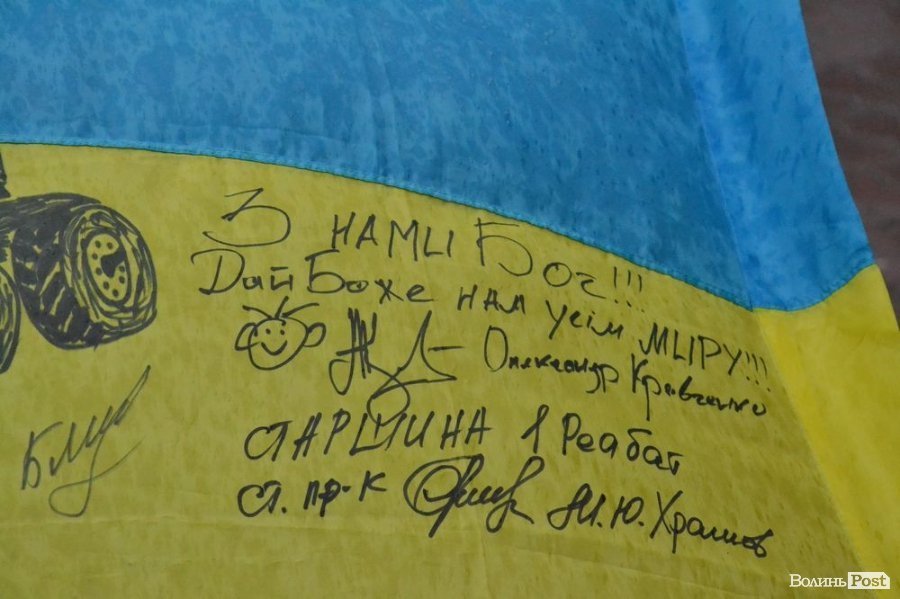 З НАМИ БОГ!!!
Дай Боже нам усім МИРУ!!!
Олександр Кравченко
СТАРШИНА 1 Реабат
ст. пр-к М.Ю. Храмов
ВолиньPost